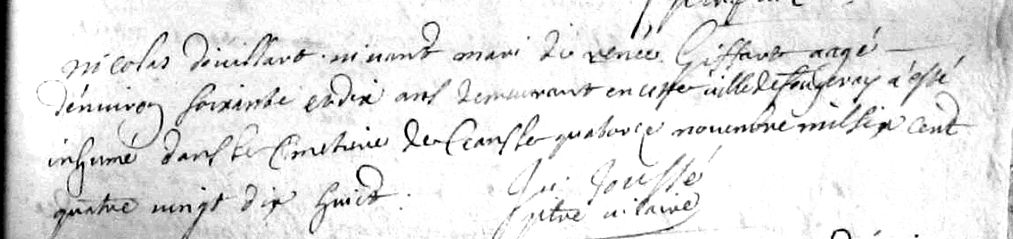 nicolas douillart vivant mari de renée Giffart aagé
d'enuiron soixante et dix ans demeurant en cette ville de fougeray a esté
inhumé dans le Cimetiere de Ceans le quatorze nouembre mil six cent
quatre vingt dix huict.
Joussé
ptre vicaire